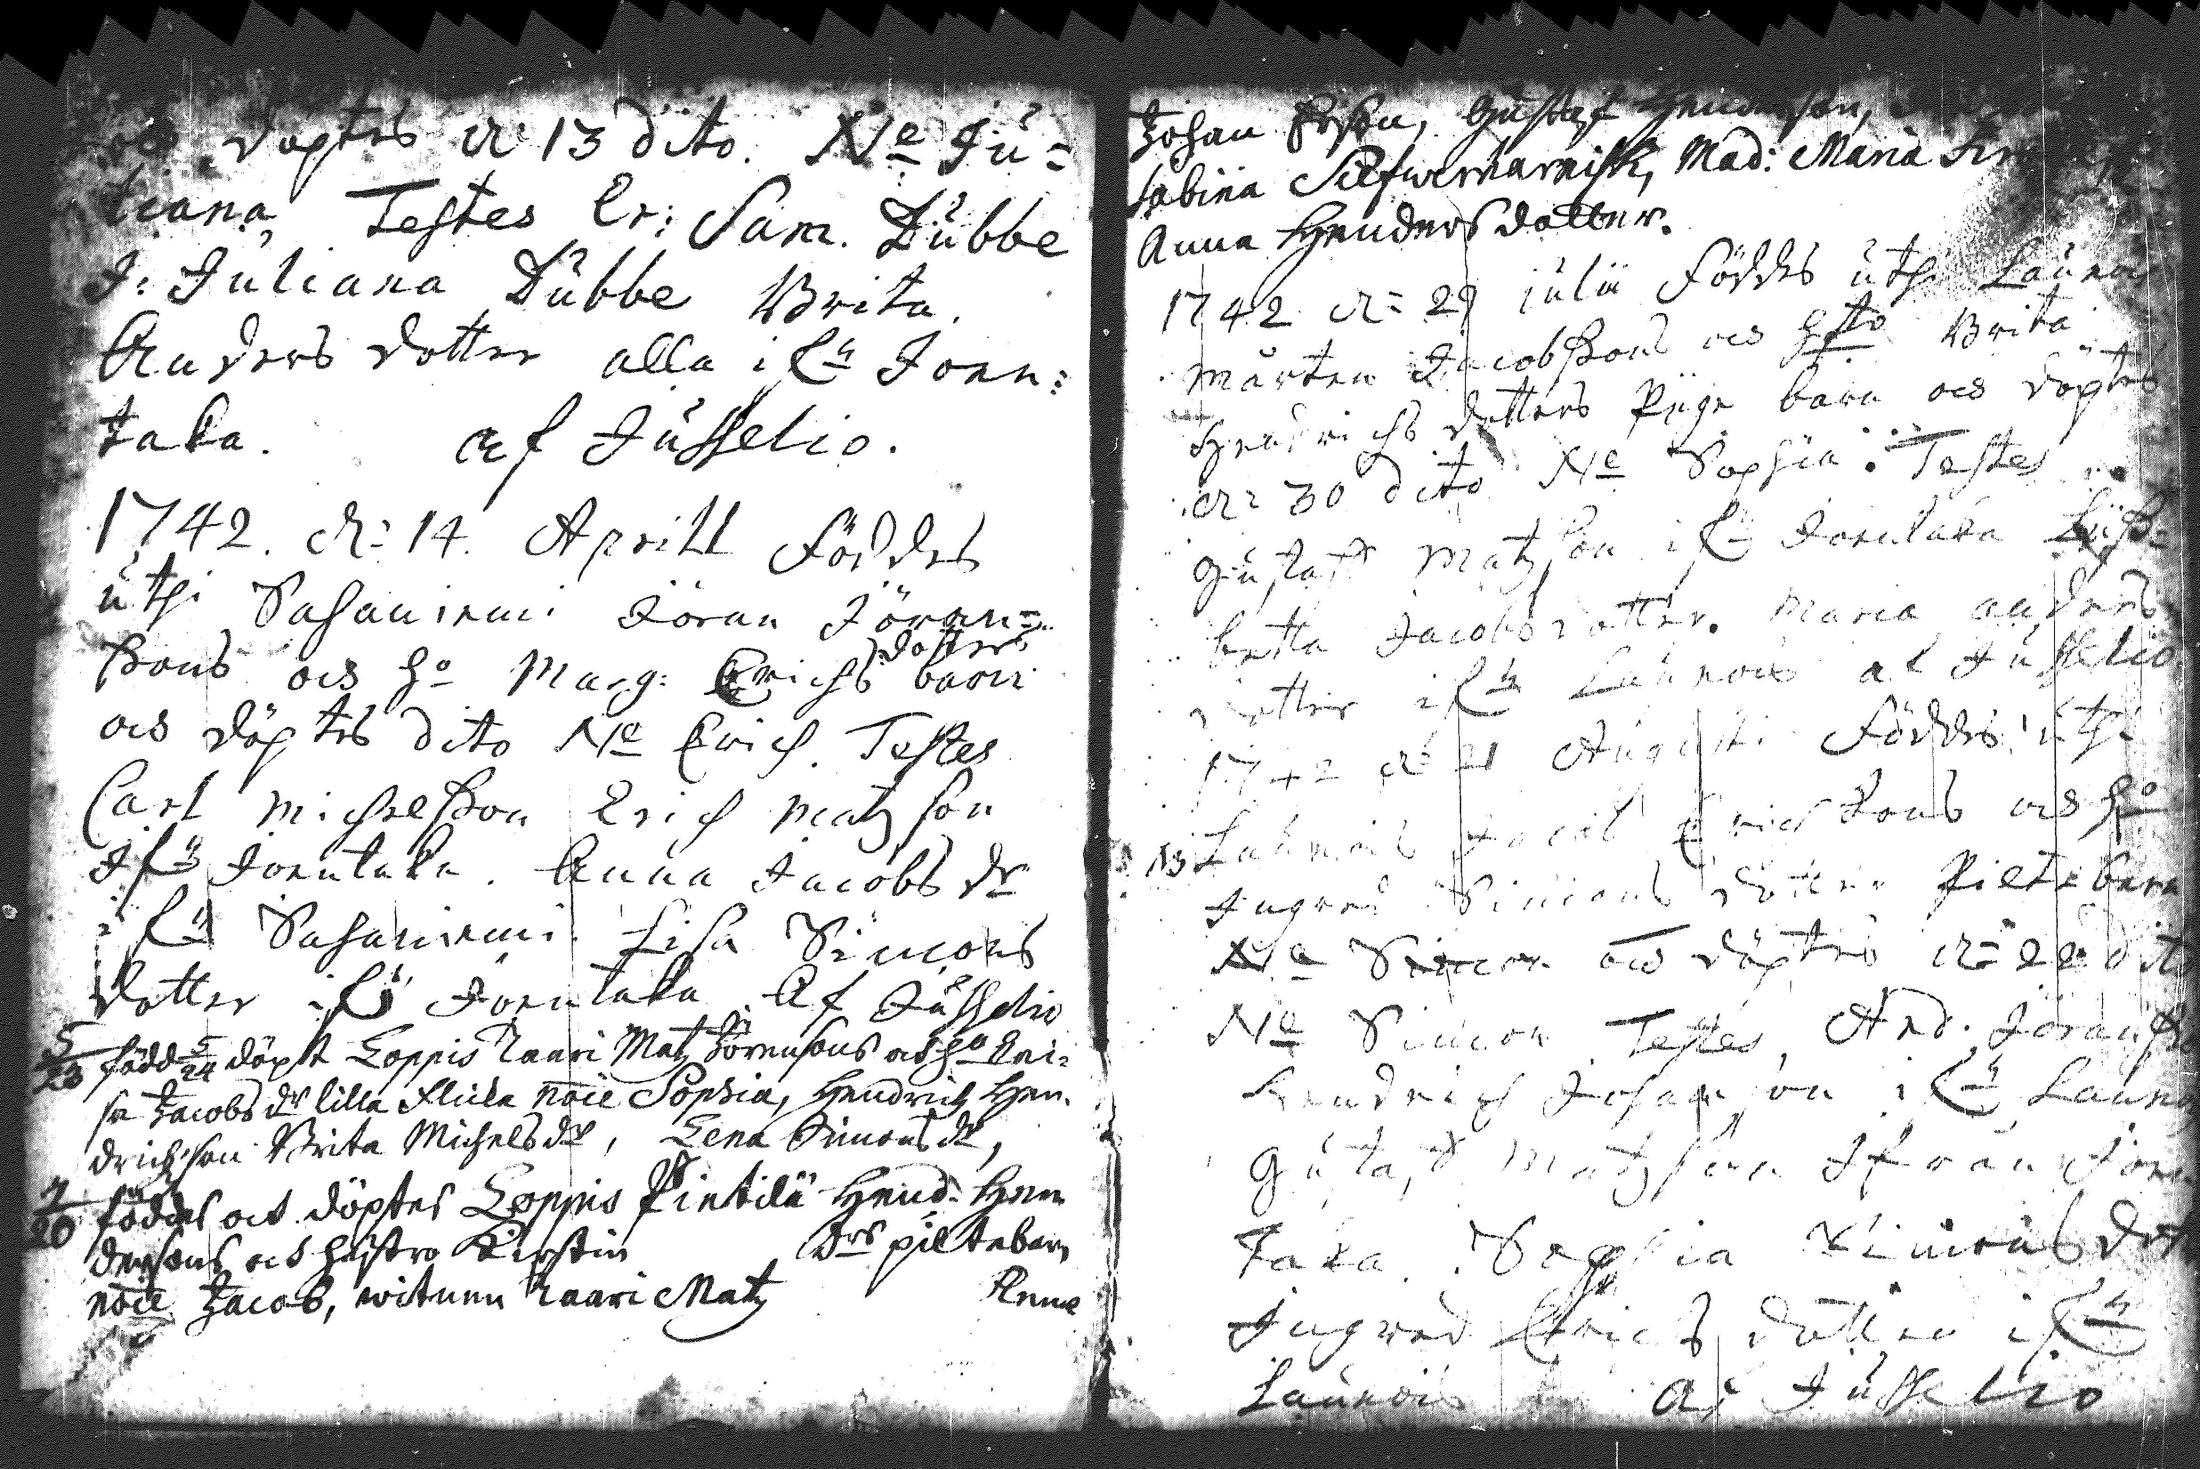 och döptes d: 13 dito. Ne Ju=
liana, Testes Cr: Sam. Dubbe
J: Juliana Dubbe Brita.
Anders dotter alla ifrån Joen:
taka. af Jusselio.
1742. d: 14. Aprill föddes
uthi Sahaniemi Jöran Jöran=
ssons och ho Marg: Erichs dotters barn
och döptes dito Ne Erich. Testes
Carl Michelsson Erich Matzson
Ifrån Joentaka. Anna Jacobs dr
ifrån Sahaniemi. Lisa Simons
dotter ifrån Joentaka. Af Jusselio
5/23 född 5/24 döpt Loppis Kaari Matz Jörensons och ho Cai=
sa Jacobs dr lilla flicka noie Sophia, Hendrich Hen.
drichson Brita Michels dr, Lena Simons dr,
7/20 föddes och döptes Loppis Pintilä Hend: Hen
dersons och hustro Kirstin drs piltebarn
noie Jacob, witnen Kaari Matz Anne
Johan Ersson, Gustaf Henderson,
Sabina Silfwerharnisk, Mad: Maria
Anna Henders dotter.
1742 d: 29 julii föddes uthi Launois
Mårten Jacobssons och hsto Brita
Hendrichs dotters Pige barn och döptes
d: 30 dito Ne Sophia. Testes
Gustaff Matzson ifrån Joentaka Lijsa=
betta Jacobs dotter. Maria anders
dotter ifrån Launois af Jusselio
1742 d: 21 Augusti föddes uthi
Launois Jacob Erichsons och ho
Ingred Simons dotters Piltebarn
Ne Simon och döptes d: 22 dito
Ne Simon Testes, And. Jöranss
Hendrich Johansson ifrån Launo
Gustaff Matzson Ifrån Joen
taka. Sophia Simons dr
Ingred Erichs dotter ifrån
Launois Af Jusselio